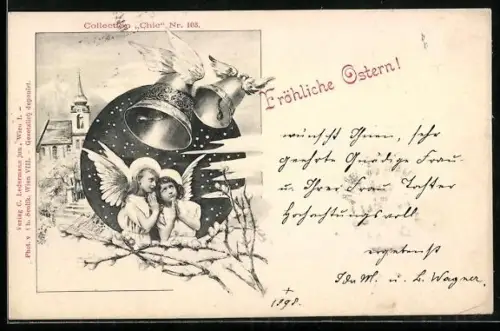 Collection „Chic“ Nr. 168.
Fröhliche Ostern!
wünscht Ihnen, sehr
geehrte Gnädige Frau
u. Ihrer Frau Tochter
Hochachtungsvoll
ergebenst
Ida M. u. L. Wagner.
1898.
Verlag C. Ledermann jun., Wien I. –
Phot. v. Ch. Scolik, Wien VIII. – Gesetzlich deponirt.